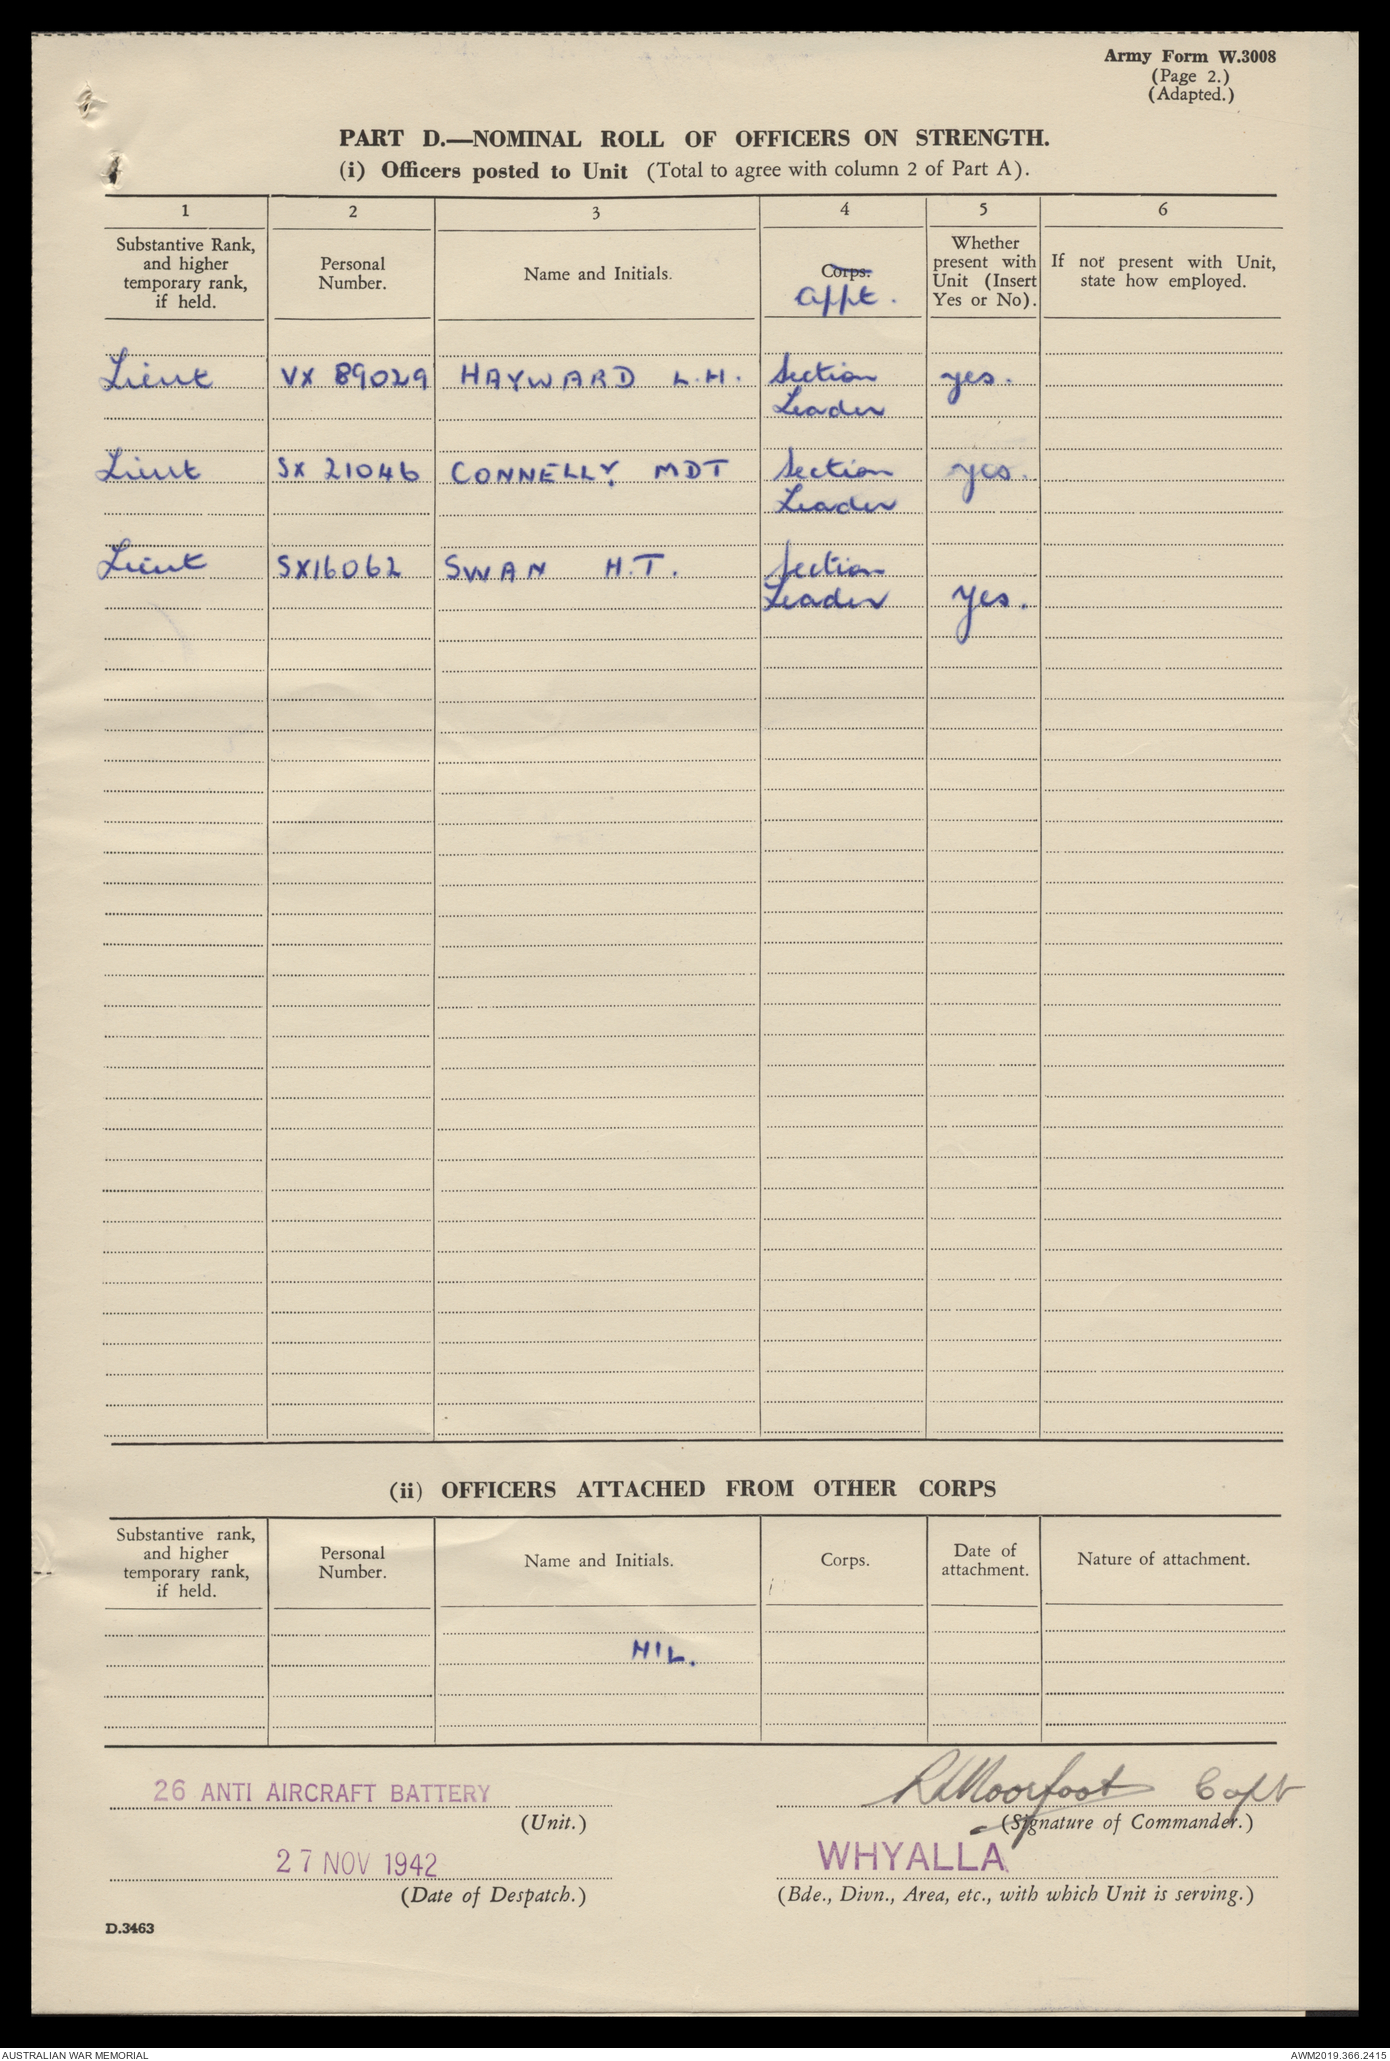 Army Form W.3008
(Page 2.)
(Adapted.)
PART D.—NOMINAL ROLL OF OFFICERS ON STRENGTH.
(i) Officers posted to Unit (Total to agree with column 2 of Part A).
1 2 3 4 5 6
Substantive Rank, and higher temporary rank, if held.
Personal Number.
Name and Initials.
Corps.
Appt.
Whether present with Unit (Insert Yes or No).
If not present with Unit, state how employed.
Lieut VX 89029 HAYWARD L.H. Section yes.
Leader
Lieut SX 21046 CONNELLY MDT Section yes.
Leader
Lieut SX16062 SWAN H.T. Section
Leader yes.
(ii) OFFICERS ATTACHED FROM OTHER CORPS
Substantive rank, and higher temporary rank, if held.
Personal Number.
Name and Initials.
Corps.
Date of attachment.
Nature of attachment.
NIL.
26 ANTI AIRCRAFT BATTERY
(Unit.)
Moorfoot Capt
(Signature of Commander.)
27 NOV 1942
(Date of Despatch.)
WHYALLA
(Bde., Divn., Area, etc., with which Unit is serving.)
D.3463
AUSTRALIAN WAR MEMORIAL
AWM2019.366.2415